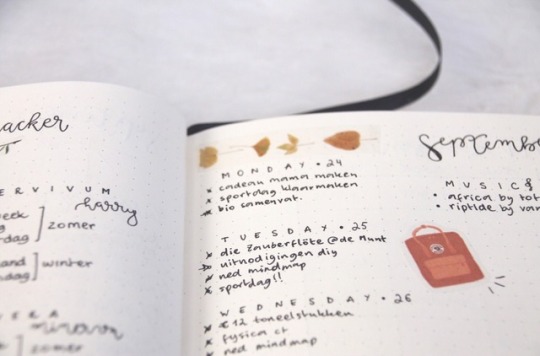 acker
ERVIVUM
harry
eek
dag
zomer
and
dag
winter
zomer
MONDAY • 24
cadeau mama maken
sportdag klaarmaken
bio samenvat.
TUESDAY • 25
die Zauberflöte @de Munt
uitnodigingen diy
ned mindmap
sportdag!!
WEDNESDAY • 26
€12 toneelstukken
fysica ct
ned mindmap
Septembe
MUSIC
• africa by tot
• riptide by van